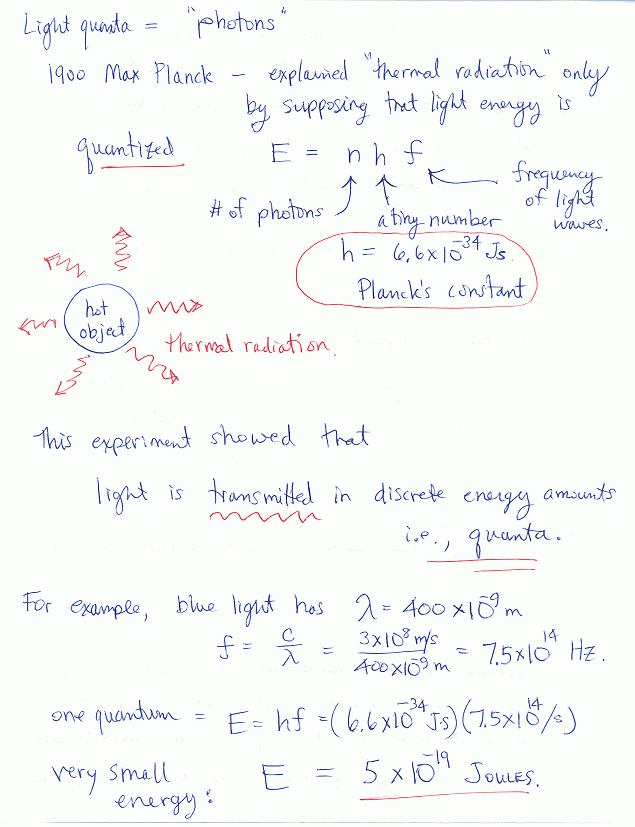 Light quanta = "photons"
1900 Max Planck – explained "thermal radiation" only
by supposing that light energy is
quantized E = n h f
# of photons
a tiny number
frequency
of light
waves.
h = 6.6 x 10^-34 Js.
Planck's constant
hot
object
thermal radiation.
This experiment showed that
light is transmitted in discrete energy amounts
i.e., quanta.
For example, blue light has λ = 400 x 10^-9 m
f = c/λ = 3x10^8 m/s / 400x10^-9 m = 7.5x10^14 Hz.
one quantum = E = hf = (6.6x10^-34 J·s)(7.5x10^14/s)
very small
energy: E = 5 x 10^-19 JOULES.